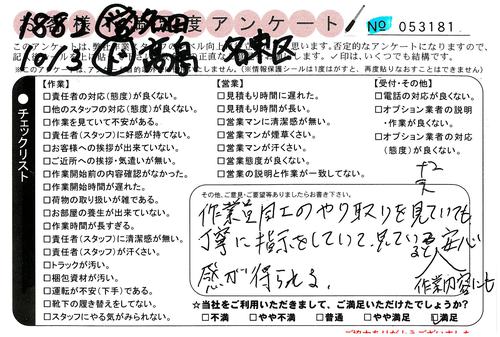 お客様満足度アンケート
No 053181
188I 営 名田
10/3 ド 馬場 名東区
チェックリスト
【作業】
□責任者の対応(態度)が良くない。
□他のスタッフの対応(態度)が良くない。
□作業を見ていて不安がある。
□責任者(スタッフ)に好感が持てない。
□お客様への挨拶が出来ていない。
□ご近所への挨拶・気遣いが無い。
□作業開始前の内容確認がなかった。
□作業開始時間が遅れた。
□荷物の取り扱いが雑である。
□お部屋の養生が出来ていない。
□作業時間が長すぎる。
□責任者(スタッフ)に清潔感が無い。
□責任者(スタッフ)が汗くさい。
□トラックが汚い。
□梱包資材が汚い。
□運転が不安(下手)である。
□靴下の履き替えをしてない。
□スタッフにやる気がみられない。
【営業】
□見積もり時間に遅れた。
□見積もり時間が長い。
□営業マンに清潔感が無い。
□営業マンが煙草くさい。
□営業マンが汗くさい。
□営業態度が良くない。
□営業の説明と作業が一致してない。
【受付・その他】
□電話の対応が良くない。
□オプション業者の説明
・作業が良くない。
□オプション業者の対応
(態度)が良くない。
その他、ご意見・ご要望等ありましたらお書き下さい。
作業員同士のやり取りを見ていても
丁寧に指示をしていて、見ていると安心
感が得られる。
作業内容にも
☆当社をご利用いただきまして、ご満足いただけたでしょうか?
□不満 □やや不満 □普通 □やや満足 □満足
ご協力ありがとうございました